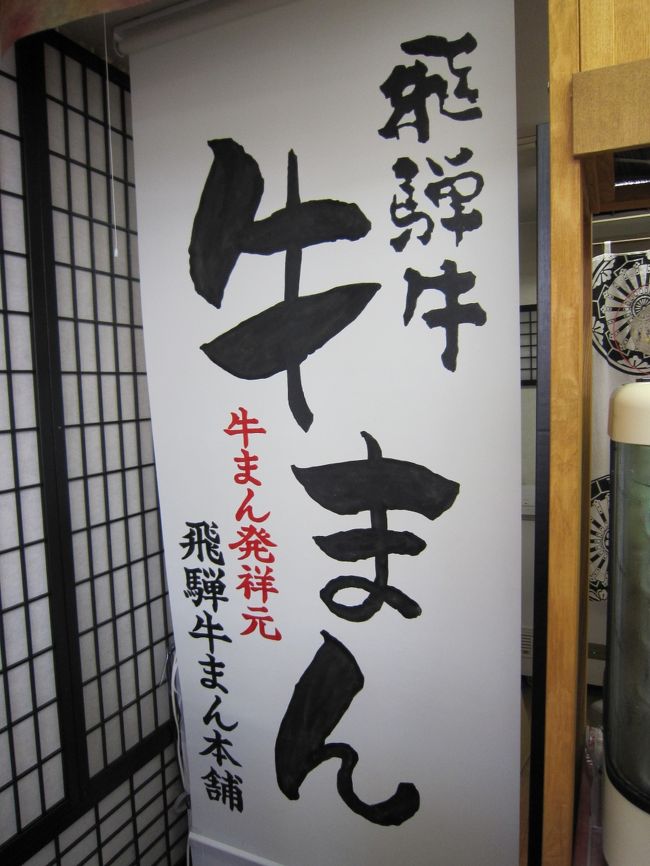 飛騨牛
牛まん
牛まん発祥元
飛騨牛まん本舗